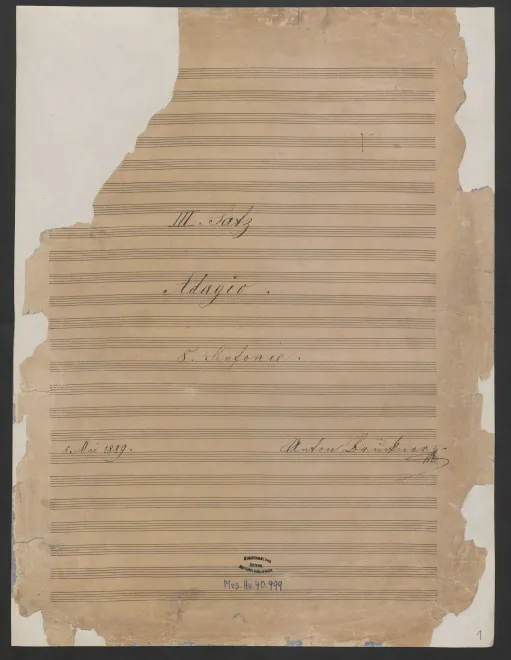 III. Satz
Adagio.
8. Sinfonie.
8. Mai 1889.
Anton Bruckner
Mus. Hs. 40.999
1